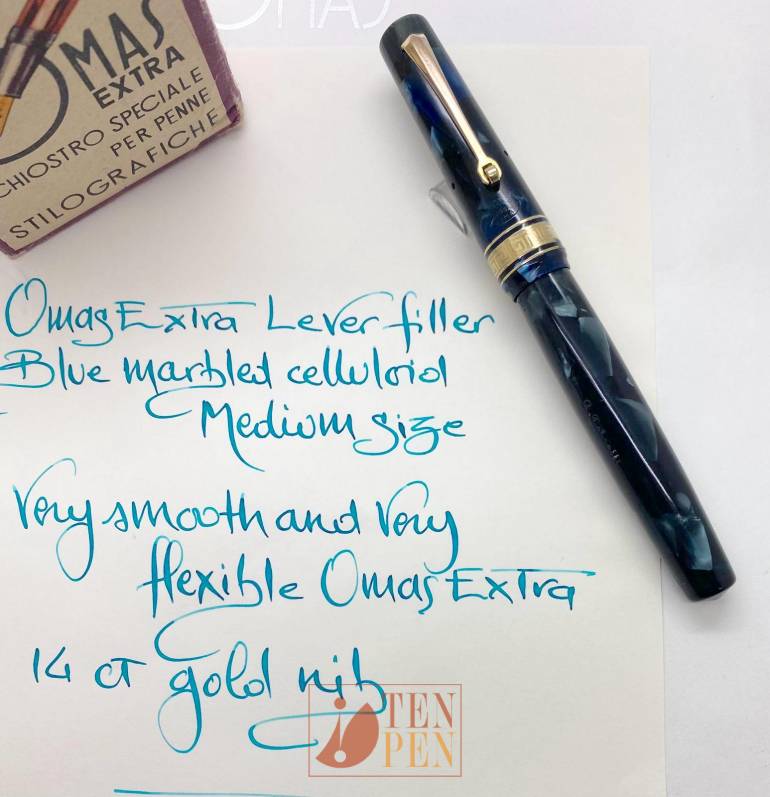 OMAS
OMAS
EXTRA
CHIOSTRO SPECIALE
PER PENNE
STILOGRAFICHE
Omas Extra Lever filler
Blue marbled celluloid
Medium size
Very smooth and Very
flexible Omas Extra
14 ct gold nib
TEN
PEN